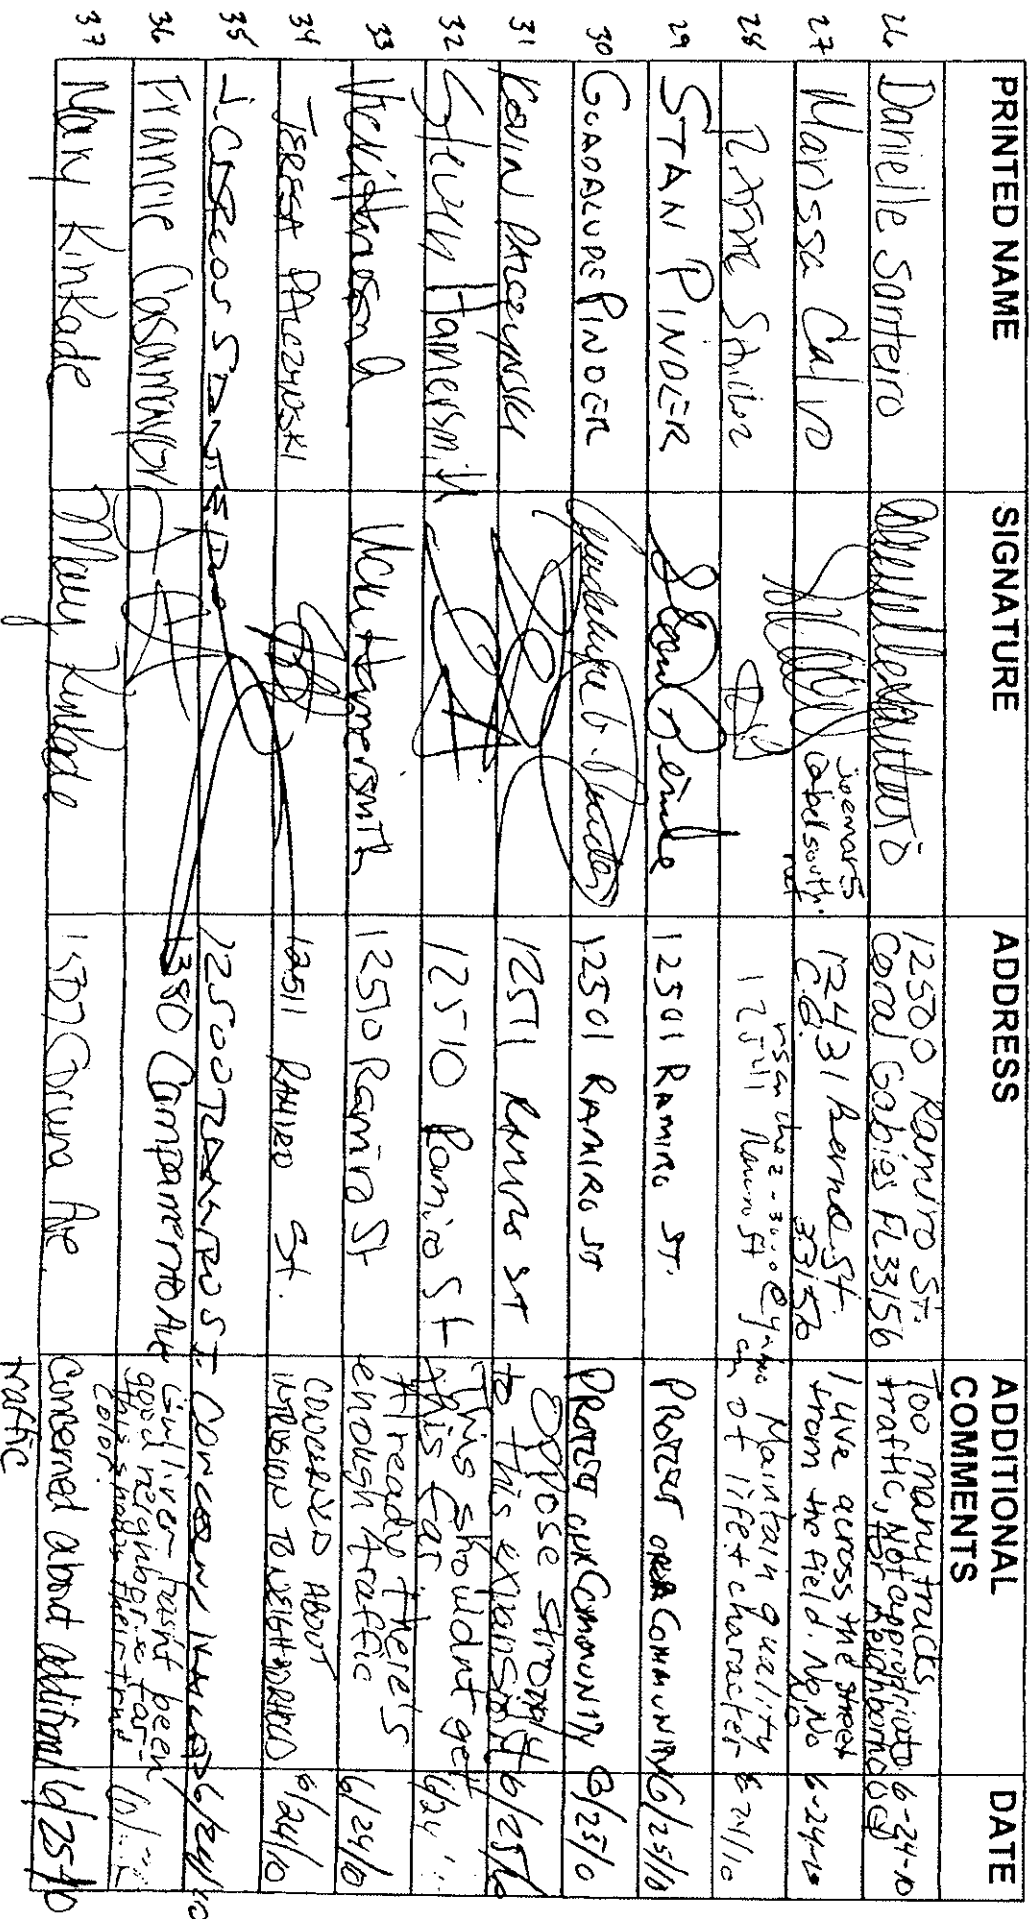 PRINTED NAME SIGNATURE ADDRESS ADDITIONAL COMMENTS DATE
26 Danielle Santeiro 12500 Ramiro St. Coral Gables FL 33156 Too many trucks traffic, Not appropriate for neighborhood 6-24-10
27 Marissa Calvo joemar5 @bellsouth.net 12431 Berna St. C.G. 33156 I live across the street from the field. No No 6-24-10
28 12511 Ramiro St Maintain quality of life & character 6/24/10
29 STAN PINDER 12501 RAMIRO ST. PROTECT OUR COMMUNITY 6/25/10
30 GUADALUPE PINDER 12501 RAMIRO ST PROTECT OUR COMMUNITY 6/25/10
31 KEVIN PALCZYNSKI 12511 RAMIRO ST Oppose strongly to this expansion 6/25/10
32 Steven Hamersmith 12510 Ramiro St This shouldnt get this far 6/24
33 12510 Ramiro St Already there's enough traffic 6/24/10
34 TERESA PALCZYNSKI 12511 RAMIRO St. CONCERNED ABOUT INTRUSION TO NEIGHBORHOOD 6/24/10
35 SANTEIRO 12500 RAMIRO ST. 6/24/10
36 1380 Campamento Ave Gulliver hasn't been good neighbor so far - this shows their true color.
37 Mary Kinkade Mary Kinkade 1507 Coruna Ave. Concerned about additional traffic 6/25/10